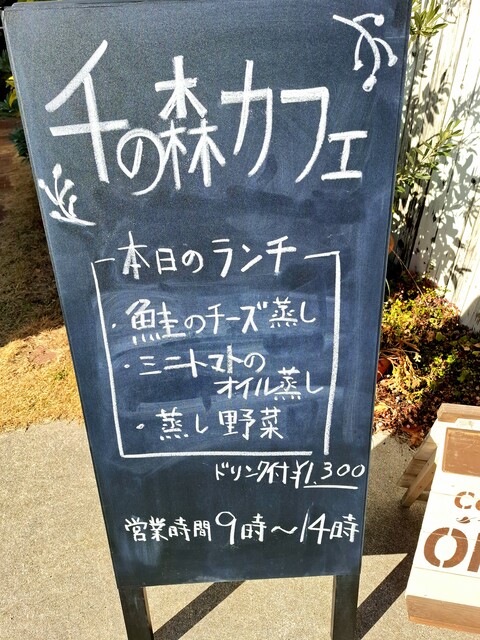 千の森カフェ
本日のランチ
・鮭のチーズ蒸し
・ミニトマトの
オイル蒸し
・蒸し野菜
ドリンク付¥1,300
営業時間9時〜14時